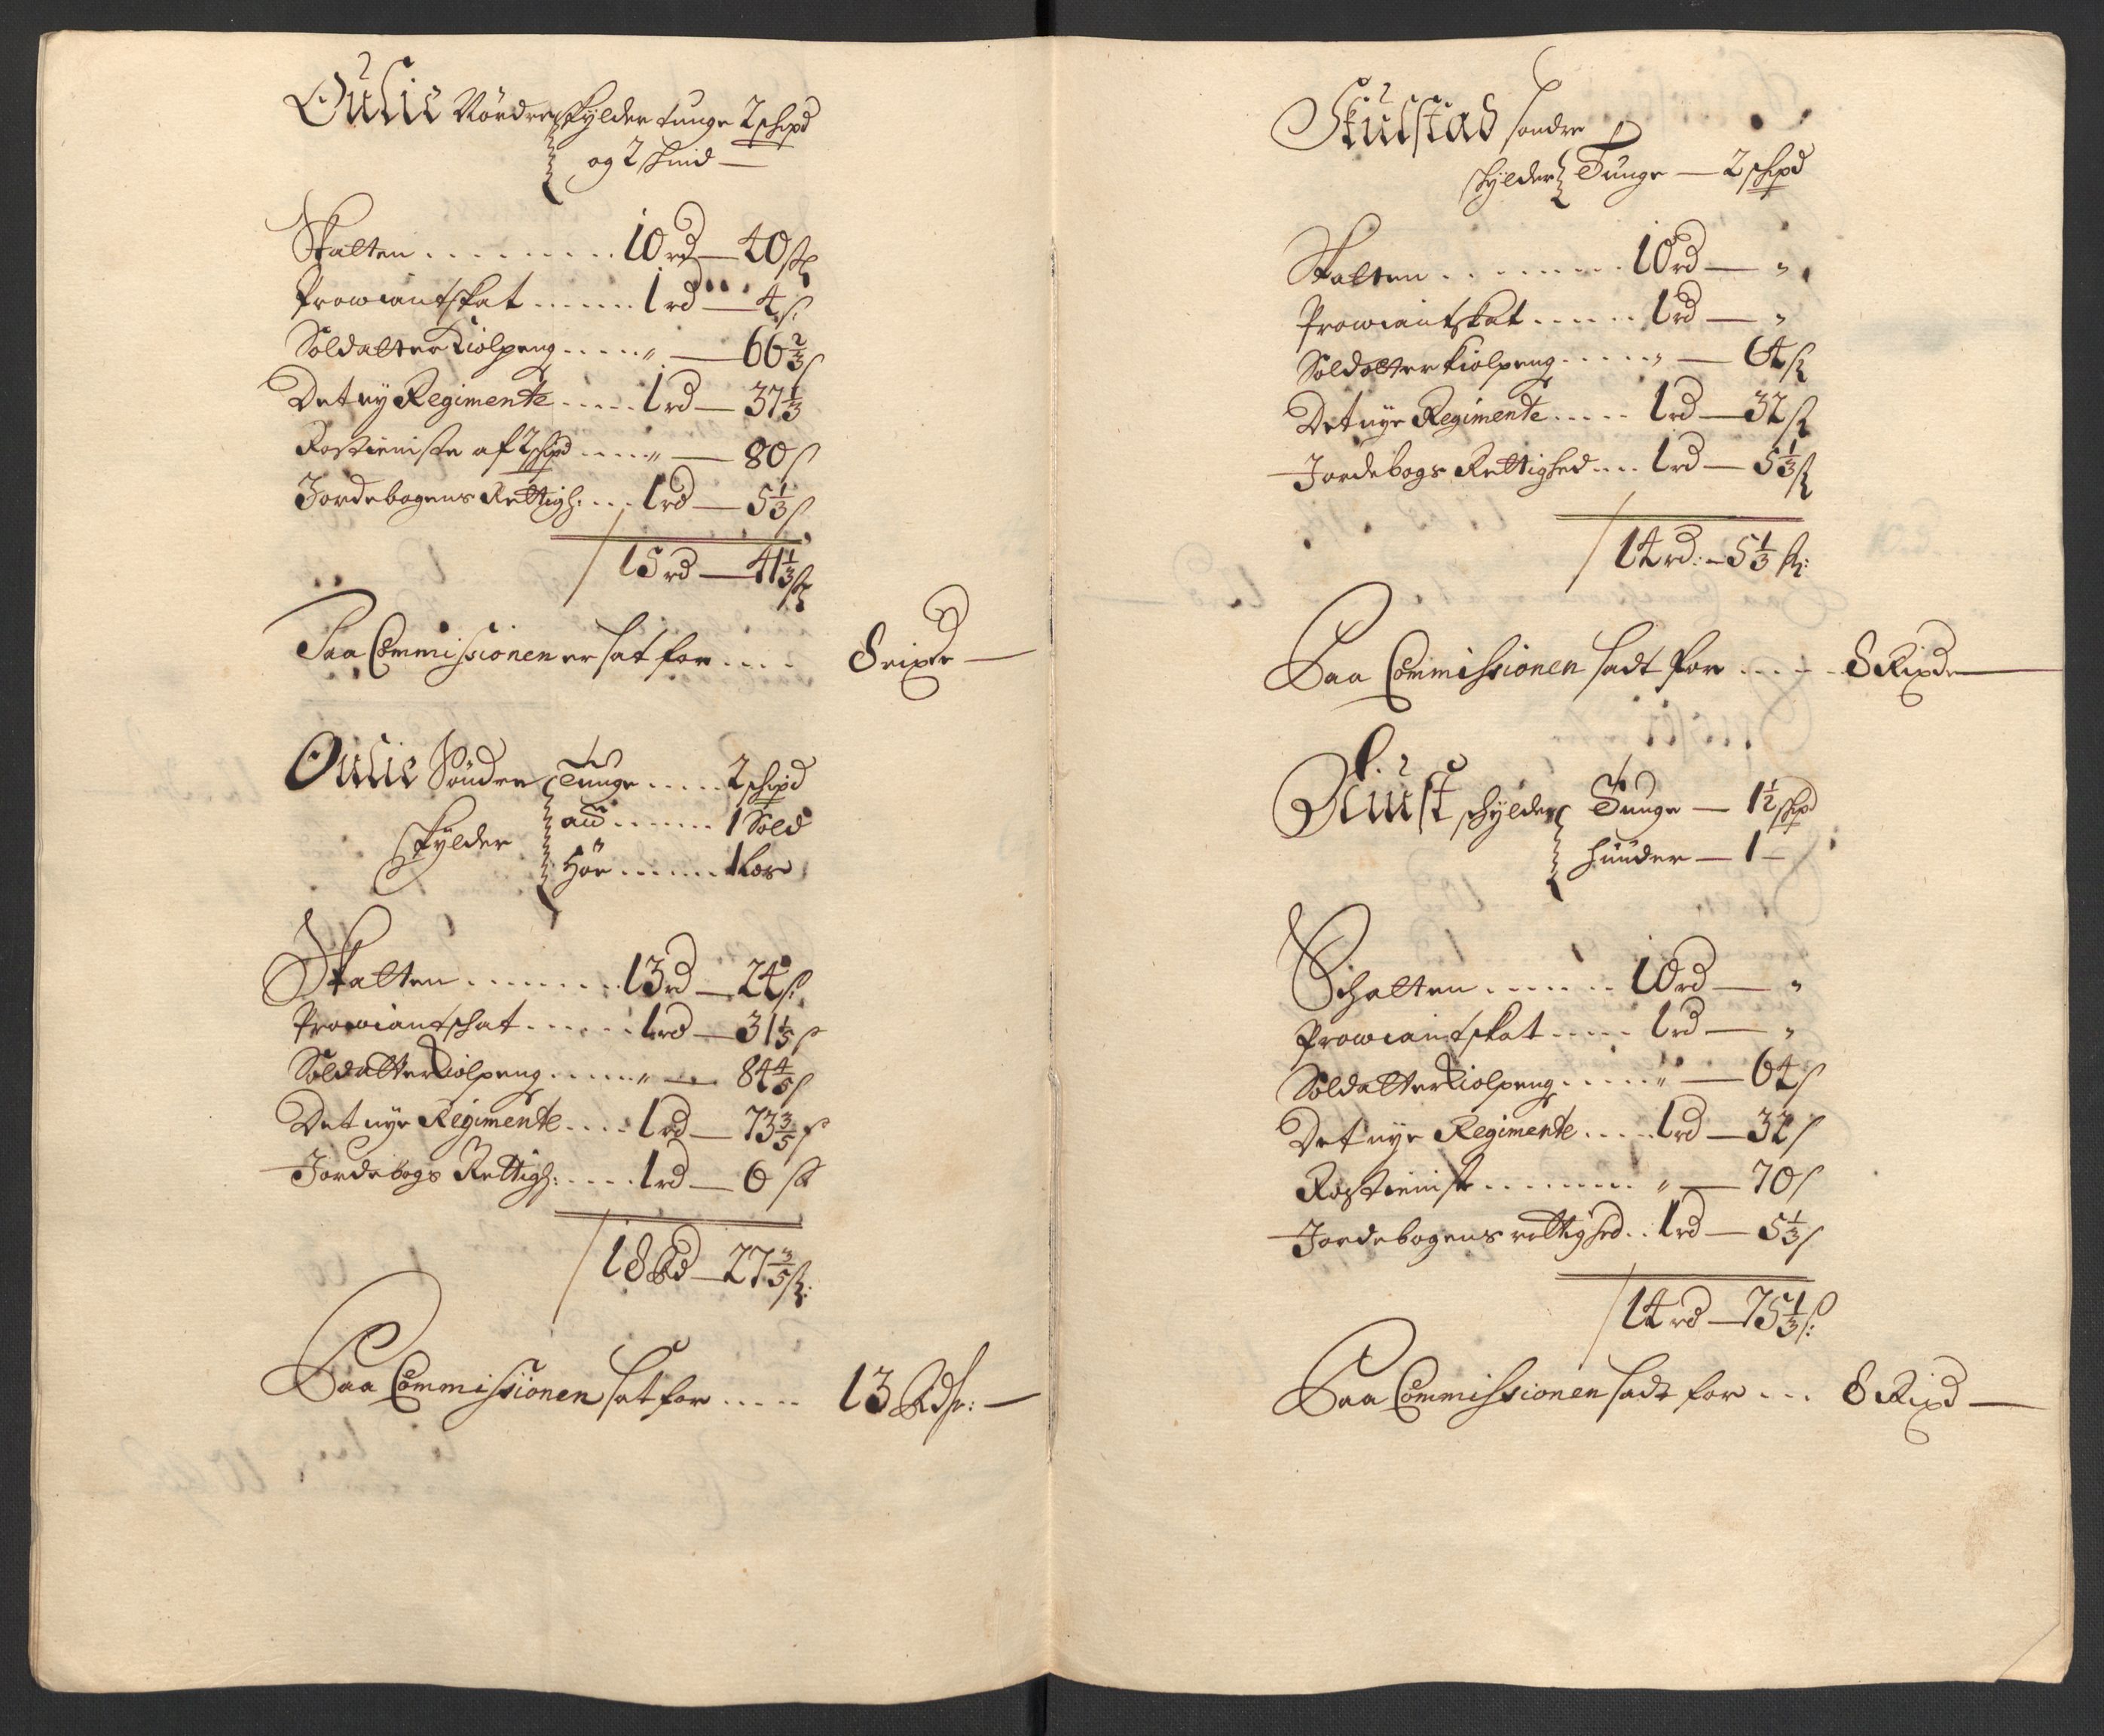 Oulie Nördre skylder tunge 2 schpd
og 2 huud —
Skatten . . . . . . . . . 10 rd — 40 sk
Prowiantskat . . . . . . 1 rd — 4 s:
Soldatter Kiolpeng . . . . . " — 66 2/3 s
Det ny Regimente . . . . . 1 rd — 37 1/3
Rostieniste af 2 schpd . . . . . " — 80 s
Jordebogens Rettigh: . . . 1 rd — 5 1/3 s
15 rd — 41 1/3 sk
Saa Commissionen er sat for . . . . 8 rixdr —
Oulie Söndre Tunge . . . . . 2 schpd
skylder
aŭ . . . . . . . 1 Sold
Höe . . . . . . 1 Læs
Skatten . . . . . . . . 13 rd — 24 s:
Prowiantschat . . . . . . 1 rd — 31 1/5 s
Soldatter Kiolpeng . . . . . . " — 84 4/5 s
Det nye Regimente . . . . 1 rd — 73 3/5 s
Jordebogs Rettigh: . . . . . 1 rd — 6 sk
18 Rd — 27 3/5 sk:
Saa Commissionen sat for . . . . . 13 Rdr: —
Skulstad söndre
skylder Tunge — 2 schpd
Skatten . . . . . . . . . 10 rd — "
Prowiantskat . . . . . . 1 rd — "
Soldatter kiolpeng . . . . . " — 64 sk
Det nye Regimente . . . . . 1 rd — 32 sk
Jordebogs Rettighed . . . 1 rd — 5 1/3 sk
14 rd: — 5 1/3 sk:
Saa Commissionen sadt for . . . . . 8 Rixdr —
Rust schylder Tunge — 1 1/2 schpd
huuder — 1 —
Schatten . . . . . . . 10 rd — "
Prowiantskat . . . . . 1 rd — "
Soldatter Kiolpeng . . . . . " — 64 s
Det nye Regimente . . . . . 1 rd — 32 s
Rostienist . . . . . . . . . " — 70 s
Jordebogens rettighed . . 1 rd — 5 1/3 s
14 rd — 75 1/3 s:
Saa Commissionen sadt for . . . 8 Rixd —